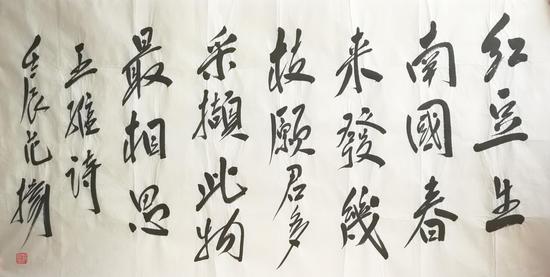 红豆生
南國春
来發幾
枝願君多
采擷此物
最相思
王維詩
壬辰范